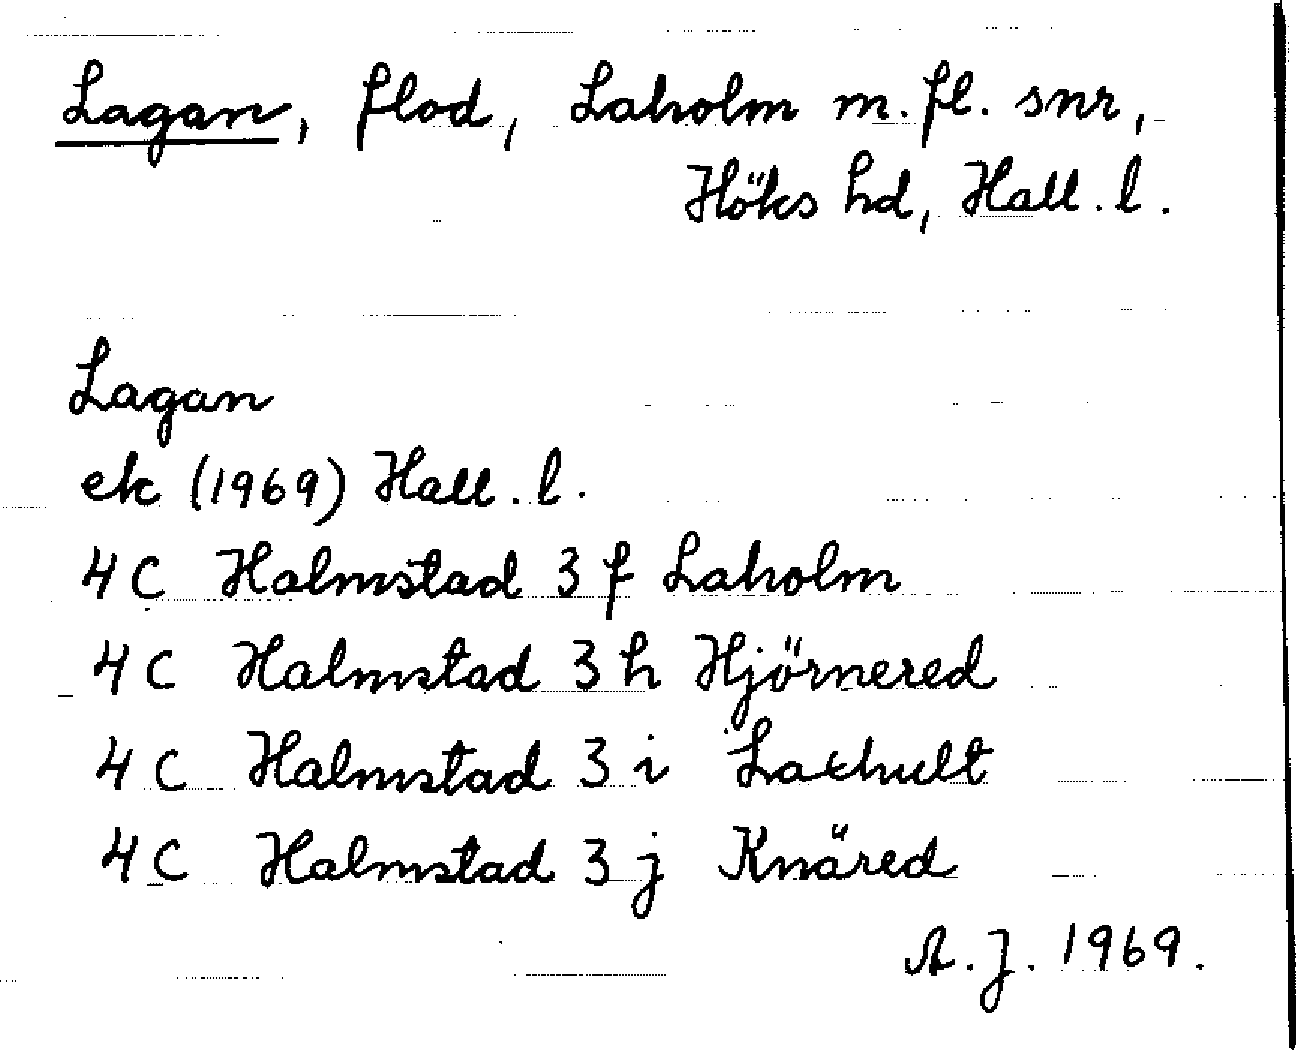 Lagan, flod, Laholm m. fl. snr,
Höks hd, Hall. l.
Lagan
ek (1969) Hall. l.
4 C Halmstad 3 f Laholm
4 C Halmstad 3 h Hjörnered
4 C Halmstad 3 i Laxhult
4 C Halmstad 3 j Knäred
A. J. 1969.